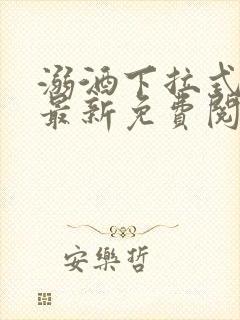 溺酒下拉式
最新免費閱
安樂哲